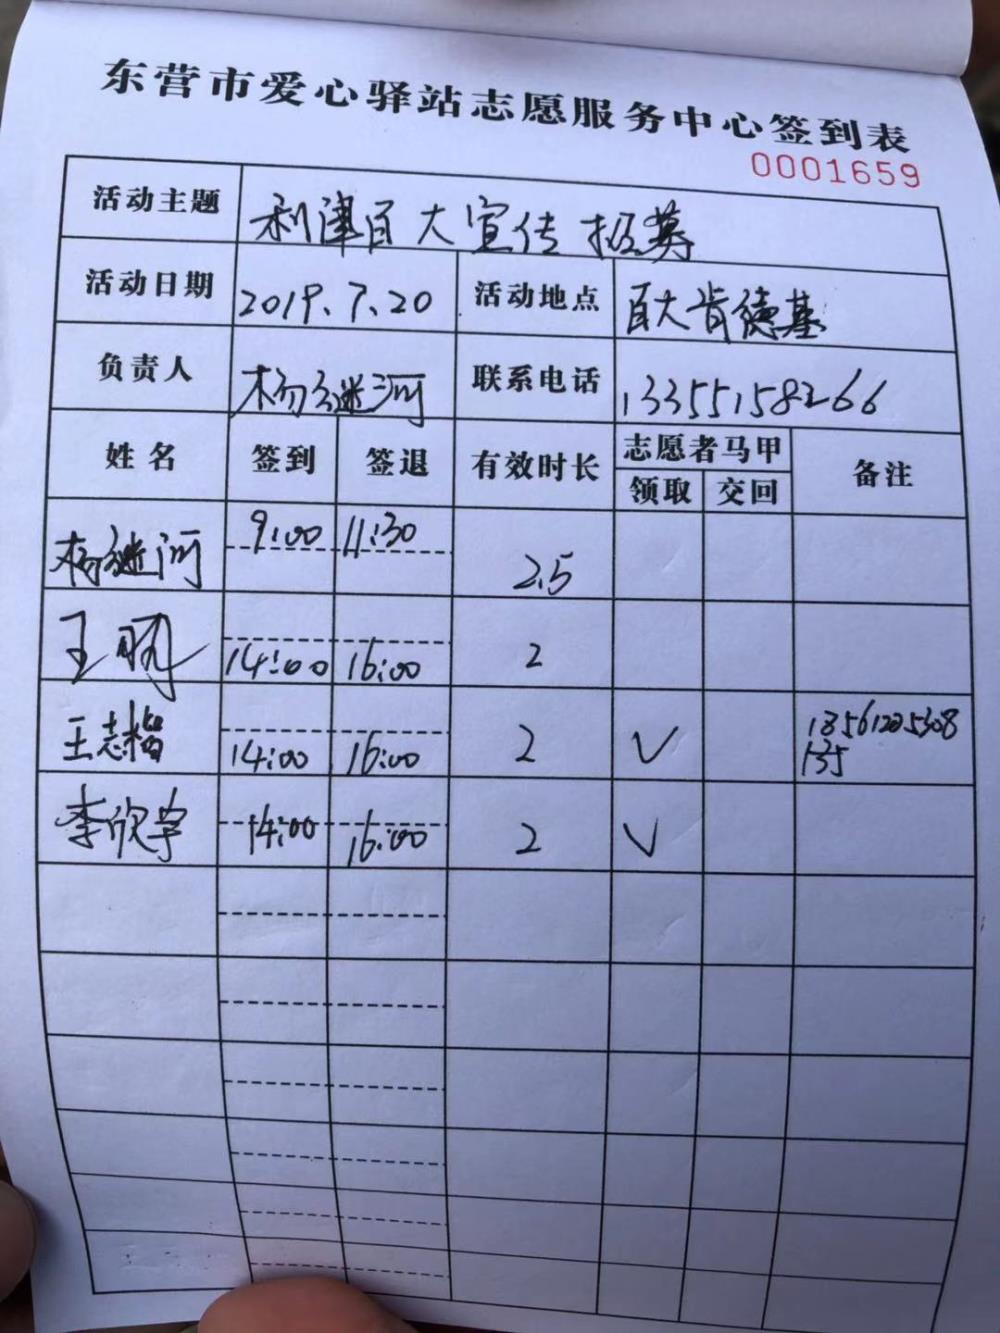 东营市爱心驿站志愿服务中心签到表
0001659
活动主题 利津百大宣传招募
活动日期 2019.7.20 活动地点 百大肯德基
负责人 杨继河 联系电话 13355158266
姓名 签到 签退 有效时长 志愿者马甲 备注
领取 交回
杨继河 9:00 11:30 2.5
王 14:00 16:00 2
王志楷 14:00 16:00 2 √ 18561225308
135
李欣宇 14:00 16:00 2 √